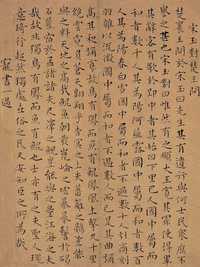 宋玉對楚王問
楚襄王問於宋玉曰先生其有遺行與何士民眾庶不
譽之甚也宋玉對曰唯然有之願大王寬其罪使得畢
其辭客有歌於郢中者其始曰下里巴人國中屬而和者
數千人其為陽阿薤露國中屬而和者數百
人其為陽春白雪國中屬而和者不過數十人引商刻
羽雜以流徵國中屬而和者不過數人而已是其曲彌
高其和彌寡故鳥有鳳而魚有鯤鳳凰上擊九千里
絕雲霓負蒼天翱翔乎杳冥之上夫藩籬之鷃豈能
與之料天地之高哉鯤魚朝發崑崙之墟暴鬐於碣
石暮宿於孟諸夫尺澤之鯢豈能與之量江海之大
哉故非獨鳥有鳳而魚有鯤也士亦有之夫聖人瑰
意琦行超然獨處世俗之民又安知臣之所為哉